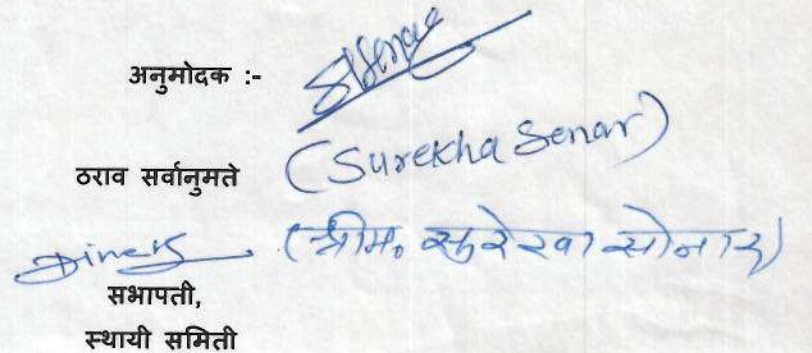 अनुमोदक :-
ठराव सर्वानुमते
(Surekha Sonar)
(श्रीम. सुरेखा सोनार)
सभापती,
स्थायी समिती